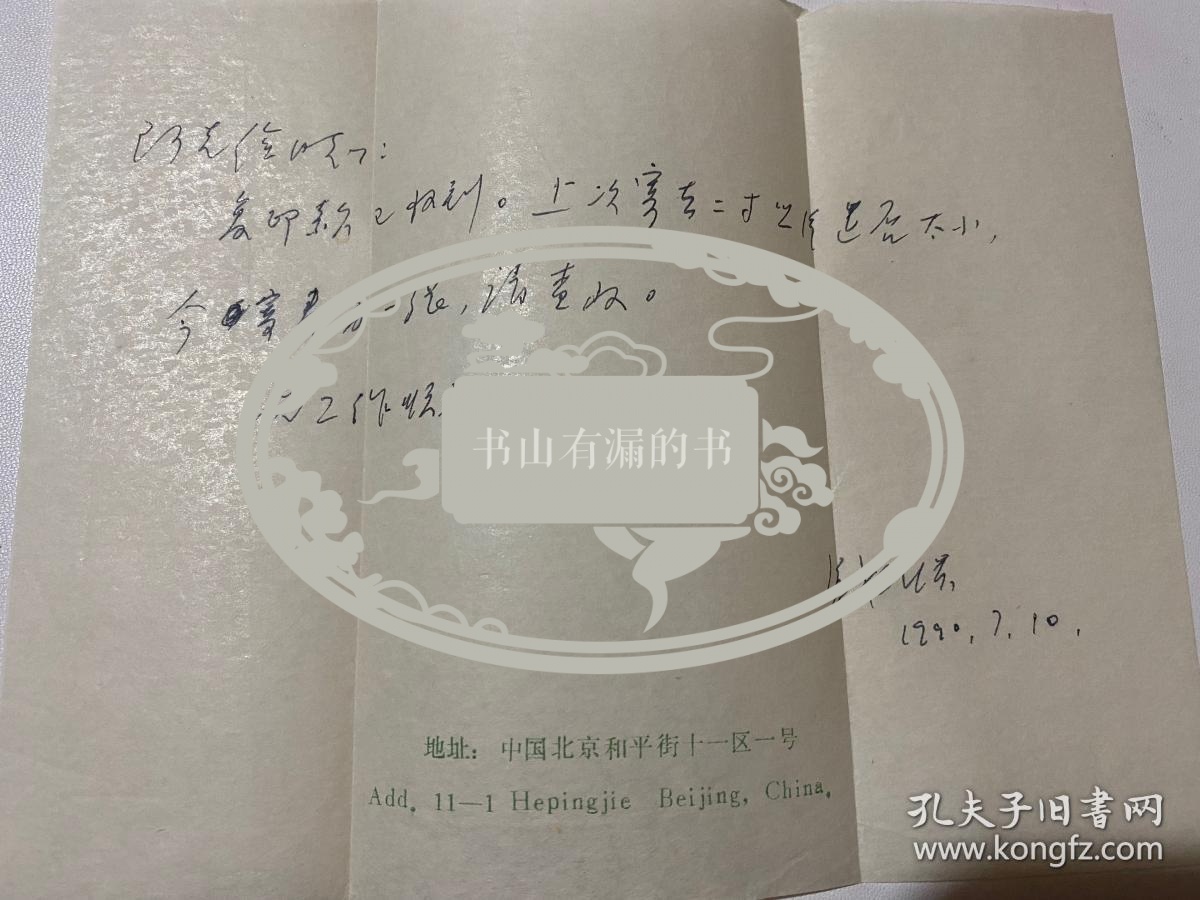 阿克俭同志:
复印款已收到。上次寄去二寸照片是否太小,
今寄一张,请查收。
祝工作顺
书山有漏的书
1990.7.10.
地址:中国北京和平街十一区一号
Add. 11—1 Hepingjie Beijing, China.
孔夫子旧书网
www.kongfz.com